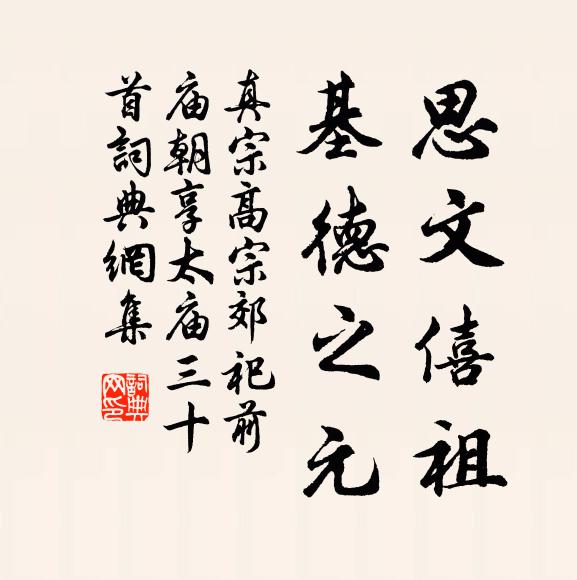 思文僖祖
基德之元
真宗高宗郊祀前
庙朝享太庙三十
首詞典網集
詞典网印